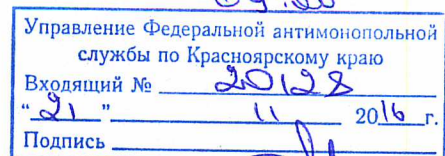 Управление Федеральной антимонопольной
службы по Красноярскому краю
Входящий № 20128
"21" 11 2016 г.
Подпись